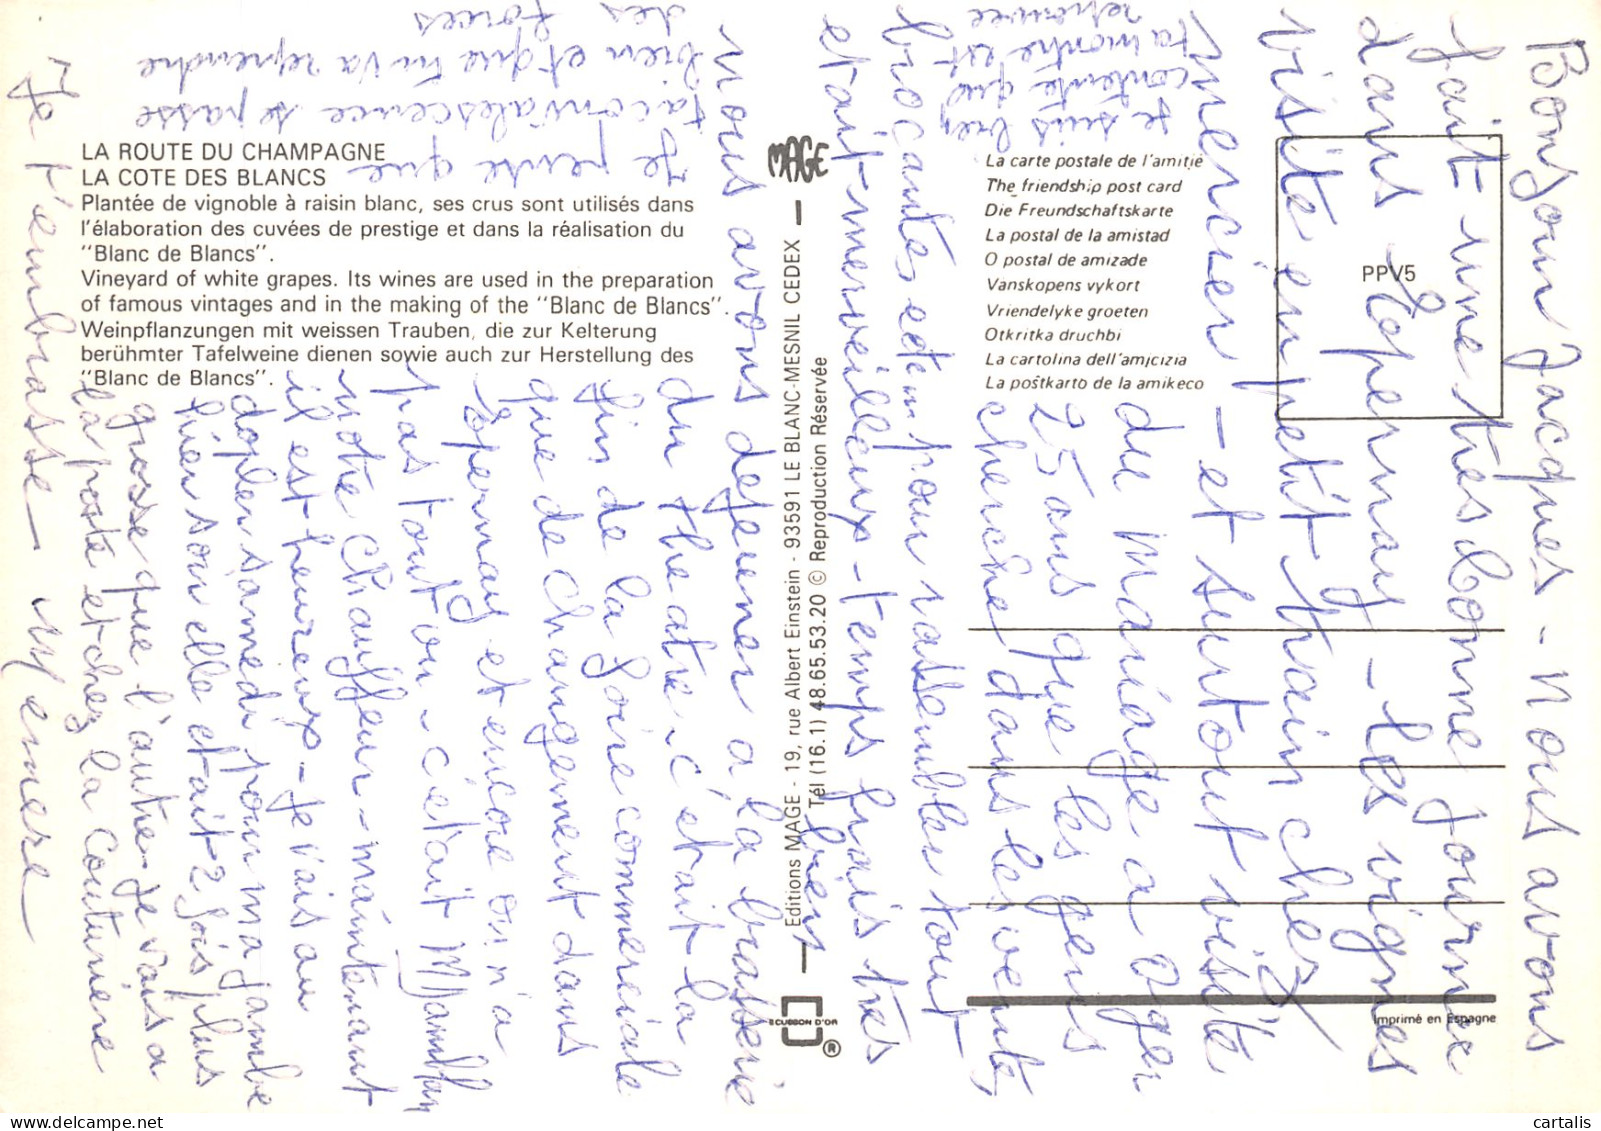 LA ROUTE DU CHAMPAGNE
LA COTE DES BLANCS
Plantée de vignoble à raisin blanc, ses crus sont utilisés dans
l'élaboration des cuvées de prestige et dans la réalisation du
"Blanc de Blancs".
Vineyard of white grapes. Its wines are used in the preparation
of famous vintages and in the making of the "Blanc de Blancs".
Weinpflanzungen mit weissen Trauben, die zur Kelterung
berühmter Tafelweine dienen sowie auch zur Herstellung des
"Blanc de Blancs".
MAGE
Editions MAGE - 19, rue Albert Einstein - 93591 LE BLANC-MESNIL CEDEX
Tél (16.1) 48.65.53.20 © Reproduction Réservée
ECUSSON D'OR
®
La carte postale de l'amitié
The friendship post card
Die Freundschaftskarte
La postal de la amistad
O postal de amizade
Vanskopens vykort
Vriendelyke groeten
Otkritka druchbi
La cartolina dell'amicizia
La poŝtkarto de la amikeco
PPV5
Imprimé en Espagne
Bonjour Jacques - nous avons
fait une très bonne journée
dans Epernay - les vignes
visite en petit train chez
Mercier - et surtout visité
du mariage a Oger
25 ans que les gens
cherche dans les vente
brocantes et en pour rassembler tout
etait merveilleux - temps frais très
bien
nous avons dejeuner a la brasserie
du theatre, c'était la
fin de la foire commerciale
que de changement dans
Epernay et encore on n'a
pas tout vu c'était M
notre chauffeur - maintenant
il est heureux - je vais au
dopler samedi pour ma jambe
hier soir elle etait 2 fois plus
grosse que l'autre. Je vais a
la poste et chez la couturière
Je t'embrasse - My emere
Je pense que
ta convalescence se passe
bien et que tu va reprendre
des forces
Je suis bien
contente que
ta montre est
retrouvée
cartalis